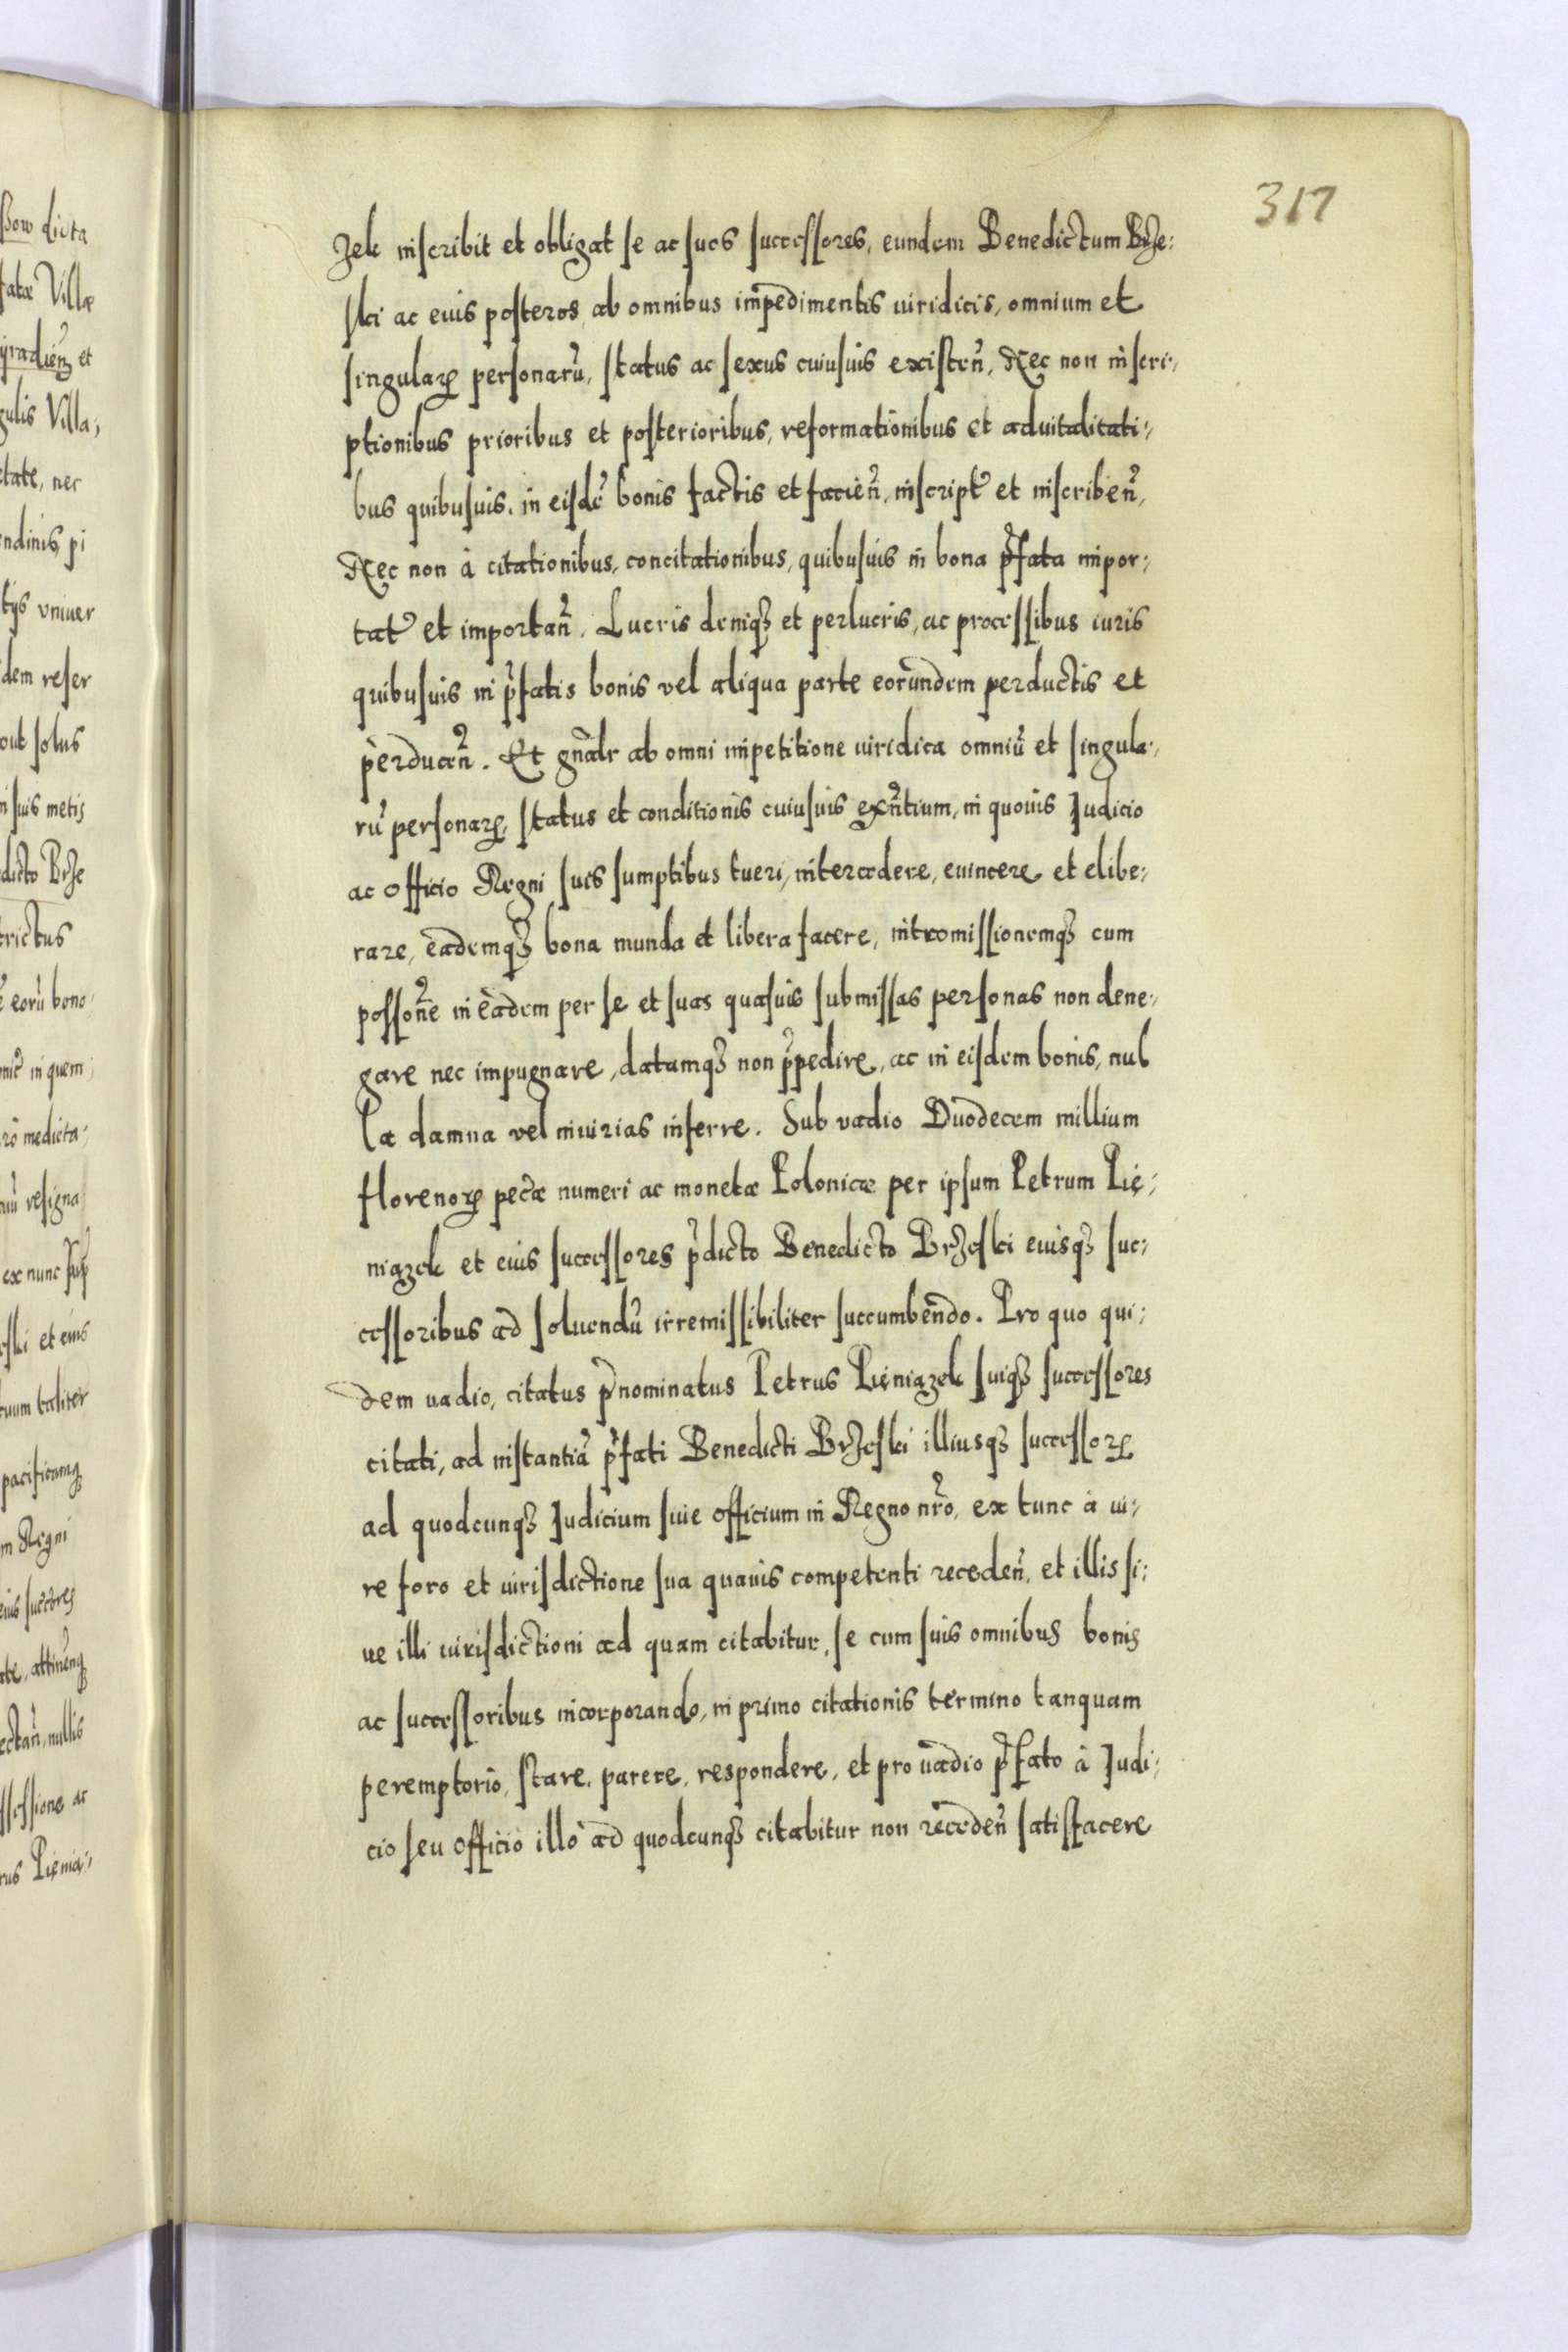 317
zek inscribit et obligat se ac suos successores, eundem Benedictum Brze:
ski ac eius posteros ab omnibus impedimentis iuridicis, omnium et
singularꝝ personarū, status ac sexus cuiusuis existen̄, Nec non inscri:
ptionibus prioribus et posterioribus, reformationibus et aduitalitati:
bus quibusuis, in eisdē bonis factis et facien̄, inscript̄ et inscriben̄,
Nec non à citationibus, concitationibus, quibusuis in bona p̄fata impor:
tat̄ et importan̄. Lucris deniqꝫ et perlucris, ac processibus iuris
quibusuis in p̄fatis bonis vel aliqua parte eorundem perductis et
perducen̄. Et gn̄alr ab omni impetitione iuridica omniū et singula:
rū personarꝝ, status et conditionis cuiusuis exn̄tium, in quouis Judicio
ac officio Regni suis sumptibus tueri, intercedere, euincere et elibe:
rare, eademqꝫ bona munda et libera facere, intromissionemqꝫ cum
posson̄e in eadem per se et suas quasuis submissas personas non dene:
gare nec impugnare, datamqꝫ non p̄pedire, ac in eisdem bonis, nul
la damna vel iniurias inferre. Sub vadio Duodecem millium
florenorꝝ pec̄æ numeri ac monetæ Polonicæ per ipsum Petrum Pię:
niązek et eius successores p̄dicto Benedicto Brzeski eiusqꝫ suc:
cessoribus ad soluendū irremissibiliter succumbendo. Pro quo qui:
dem uadio, citatus p̄nominatus Petrus Pięniązek suiqꝫ successores
citati, ad instantiā p̄fati Benedicti Brzeski illiusqꝫ successorꝝ
ad quodcunqꝫ Judicium siue officium in Regno nr̄o, ex tunc à iu:
re foro et iurisdictione sua quauis competenti receden̄, et illis si:
ue illi iurisdictioni ad quam citabitur, se cum suis omnibus bonis
ac successoribus incorporando, in primo citationis termino tanquam
peremptorio, stare, parere, respondere, et pro uadio p̄fato à Judi:
cio seu officio illo ad quodcunqꝫ citabitur non receden̄ satisfacere